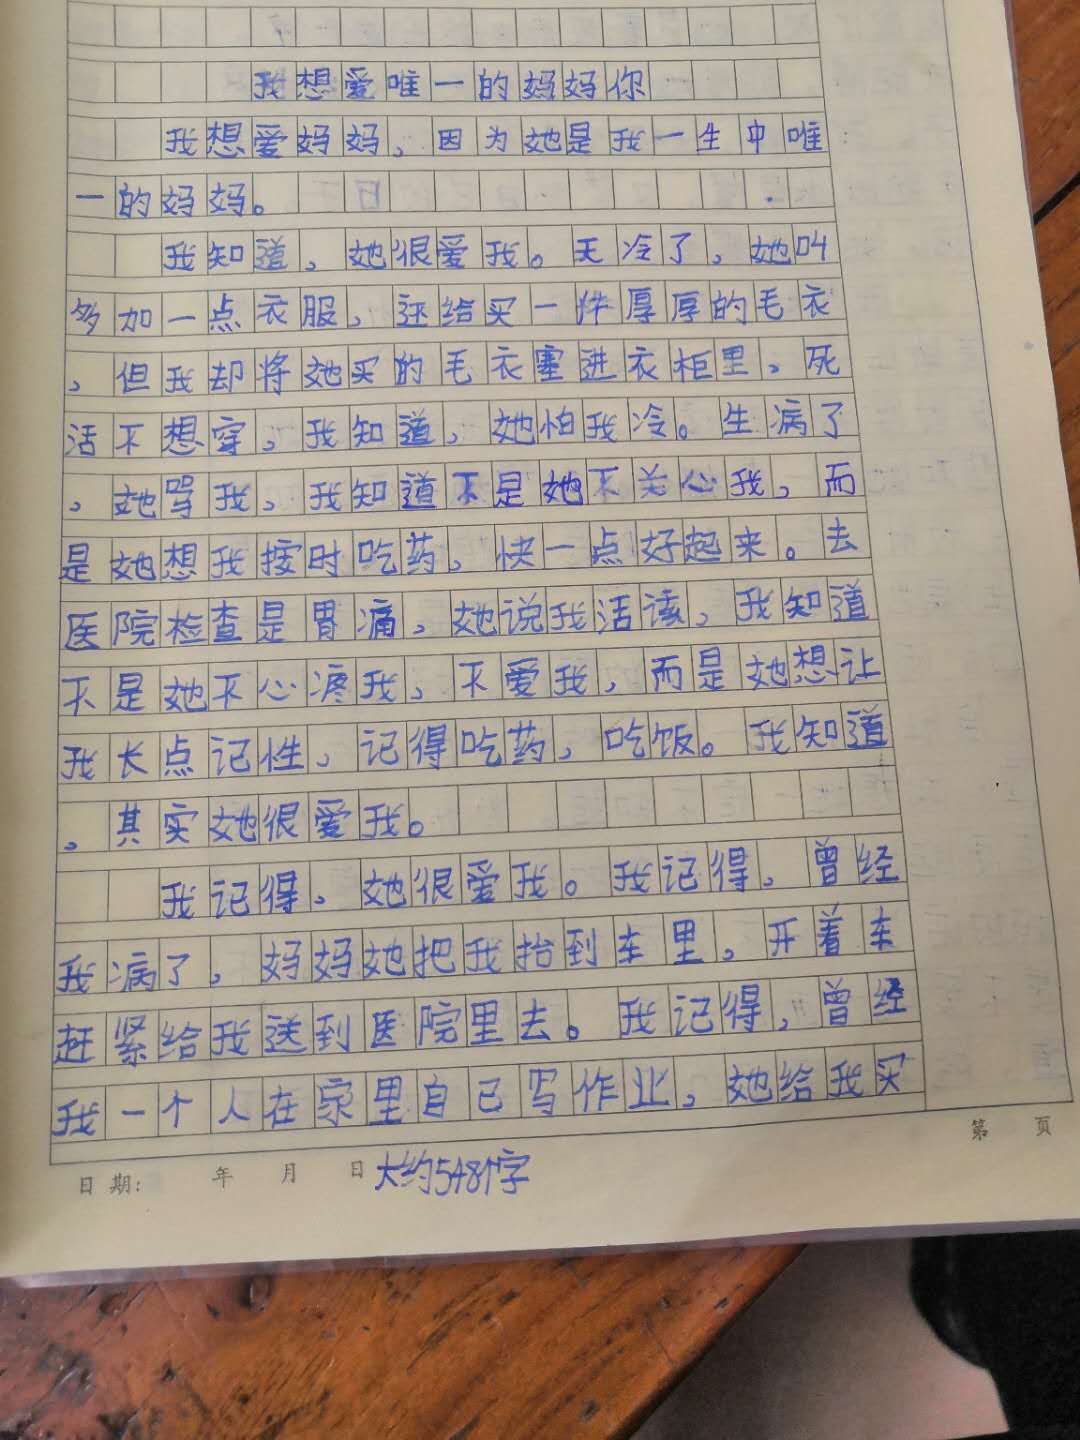 我想爱唯一的妈妈你
我想爱妈妈，因为她是我一生中唯
一的妈妈。
我知道，她很爱我。天冷了，她叫
多加一点衣服，还给买一件厚厚的毛衣
，但我却将她买的毛衣塞进衣柜里。死
活不想穿，我知道，她怕我冷。生病了
，她骂我，我知道不是她不关心我，而
是她想我按时吃药，快一点好起来。去
医院检查是胃痛，她说我活该，我知道
不是她不心疼我，不爱我，而是她想让
我长点记性，记得吃药，吃饭。我知道
，其实她很爱我。
我记得，她很爱我。我记得，曾经
我病了，妈妈她把我抬到车里，开着车
赶紧给我送到医院里去。我记得，曾经
我一个人在家里自己写作业，她给我买
第 页
日期: 年 月 日 大约548个字